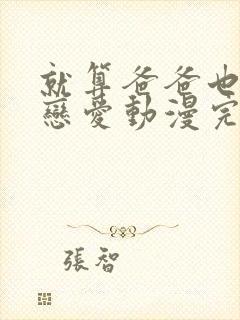 就算爸爸也
戀愛動漫完
張智